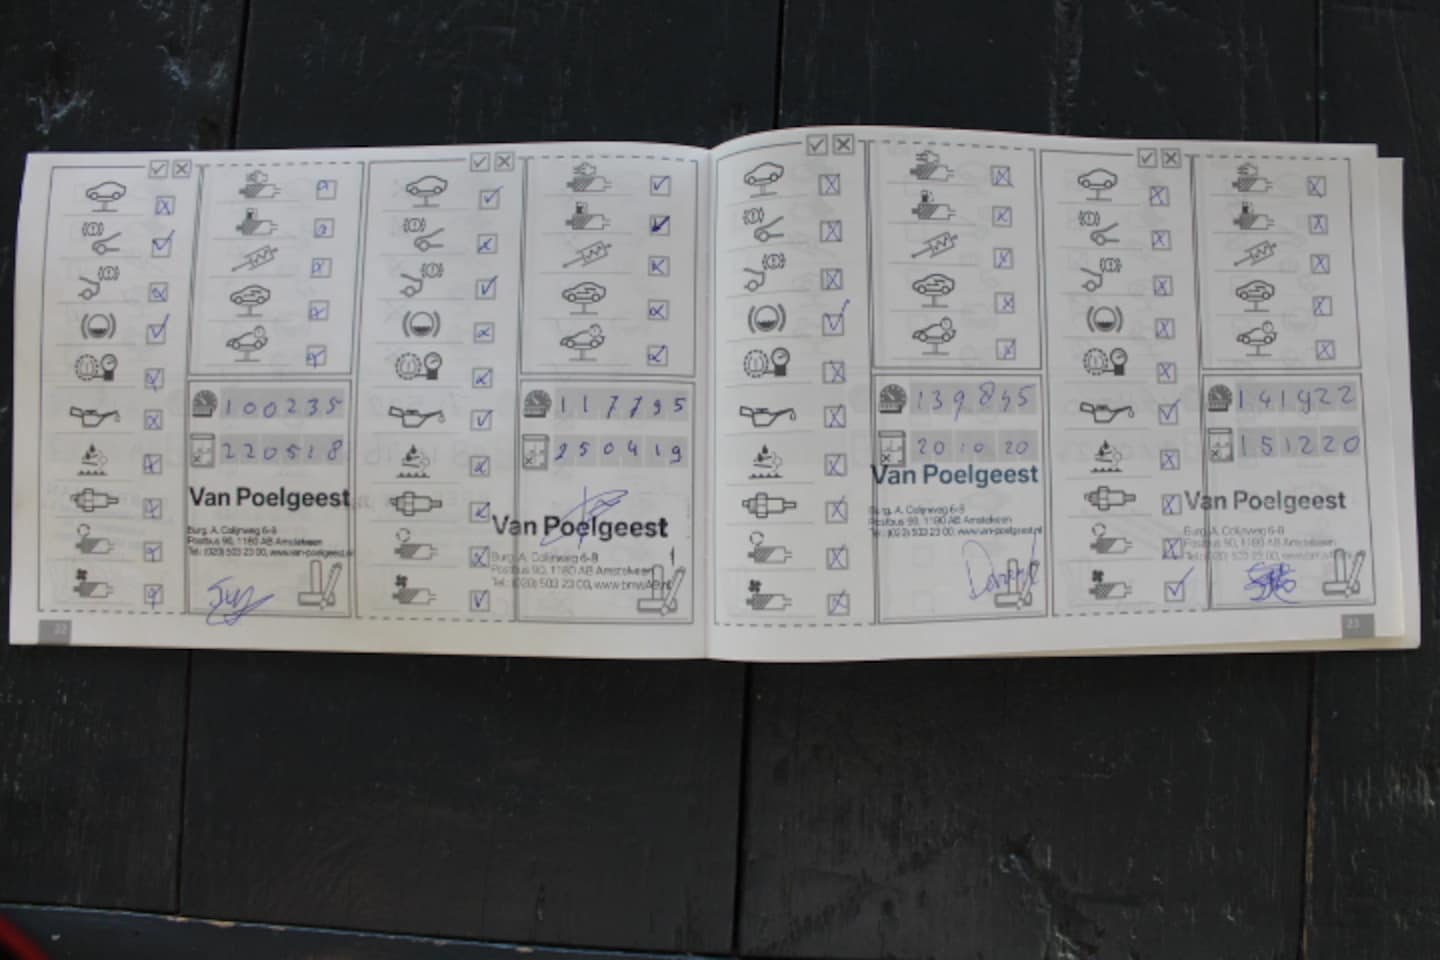 100235
220518
Van Poelgeest
Burg. A. Colijnweg 6-8
Postbus 90, 1180 AB Amstelveen
Tel.: (020) 503 23 00, www.van-poelgeest.nl
22
117795
250419
Van Poelgeest
Burg. A. Colijnweg 6-8
Postbus 90, 1180 AB Amstelveen
Tel.: (020) 503 23 00,
139845
201020
Van Poelgeest
Burg. A. Colijnweg 6-8
Postbus 90, 1180 AB Amstelveen
Tel.: (020) 503 23 00, www.van-poelgeest.nl
141922
151220
Van Poelgeest
Burg. A. Colijnweg 6-8
Postbus 90, 1180 AB Amstelveen
Tel.: (020) 503 23 00,
23